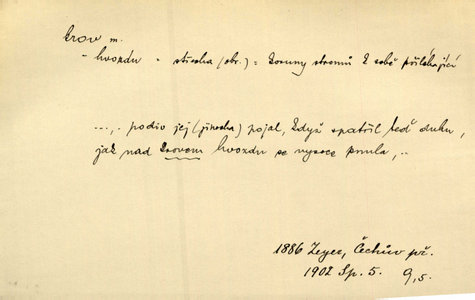 krov m.
- hvozdu - střecha (obr.) = koruny stromů k sobě přiléhající
..., podiv jej (jinocha) pojal, když spatřil teď duhu,
jak nad krovem hvozdu se vysoce pnula, ..
1886 Zeyer, Čechův př.
1902 Sp. 5. 9,5.